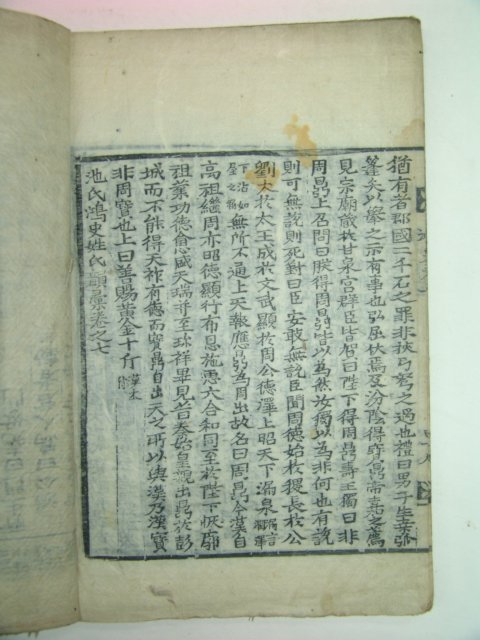 猶有者郡國二千石之罪非挾弓弩之過也禮曰男子生桑弧
蓬矢以擧之示有事也弘屈伏焉及汾陰得寶鼎帝嘉之薦
見宗廟藏於甘泉宮群臣皆賀曰陛下得周鼎壽王獨曰非
周鼎上召問曰朕得周鼎皆以爲然汝獨以爲非何也有說
則可無說則死對曰臣安敢無說臣聞周德始於后稷長於公
劉大於太王成於文武顯於周公德澤上昭天下漏泉
無所不通上天報應鼎爲周出故名曰周鼎今漢自
高祖繼周亦昭德顯行布恩施惠六合和同至於陛下恢廓
祖業功德愈盛天瑞并至珍祥畢見昔秦始皇觀出鼎於彭
城而不能得天祚有德而寶鼎自出天之所以與漢乃漢寶
非周寶也上曰善賜黃金十斤
池氏鴻史姓氏彙卷之七